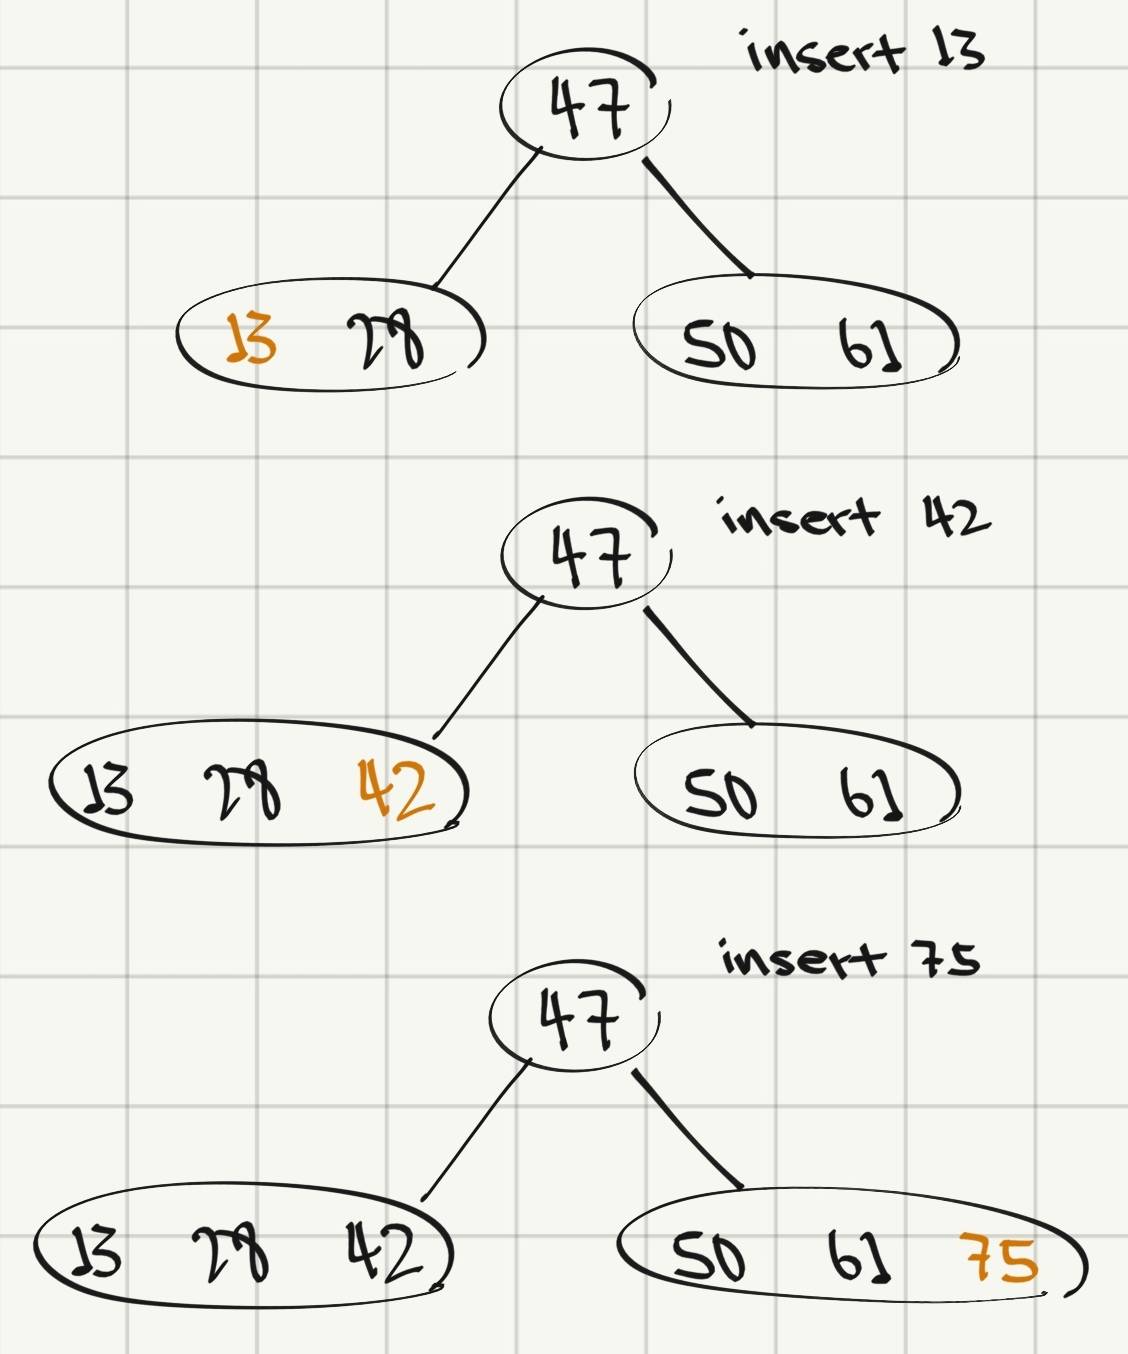 insert 13
47
13 28 50 61
insert 42
47
13 28 42 50 61
insert 75
47
13 28 42 50 61 75